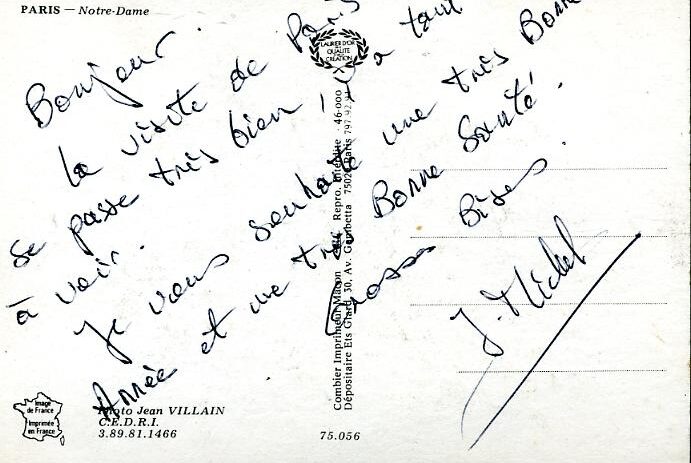 PARIS — Notre-Dame
LAURIER D'OR
QUALITÉ
CRÉATION
Bonjour.
la visite de Paris
se passe très bien, y a tant
à voir.
Je vous souhaite une très Bonne
Année et une très Bonne Santé.
Grosses Bises
J. Michel
Combier Imprimeur Macon Repro. Interdite - 46-000
Dépositaire Ets Giard, 30, Av. Gambetta 75020 Paris 797.92
Image
de France
Imprimée
en France
Photo Jean VILLAIN
C.E.D.R.I.
3.89.81.1466
75.056